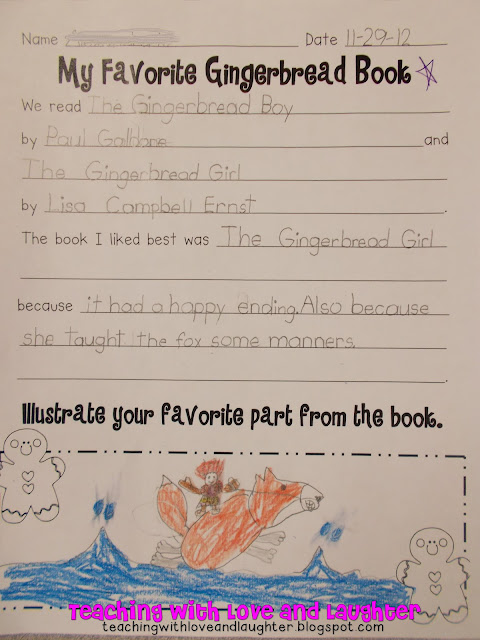 Name Date 11-29-12
My Favorite Gingerbread Book
We read The Gingerbread Boy
by Paul Galdone and
The Gingerbread Girl
by Lisa Campbell Ernst.
The book I liked best was The Gingerbread Girl
because it had a happy ending. Also because
she taught the fox some manners.
Illustrate your favorite part from the book.
Teaching With Love and Laughter
teachingwithloveandlaughter.blogspot.com